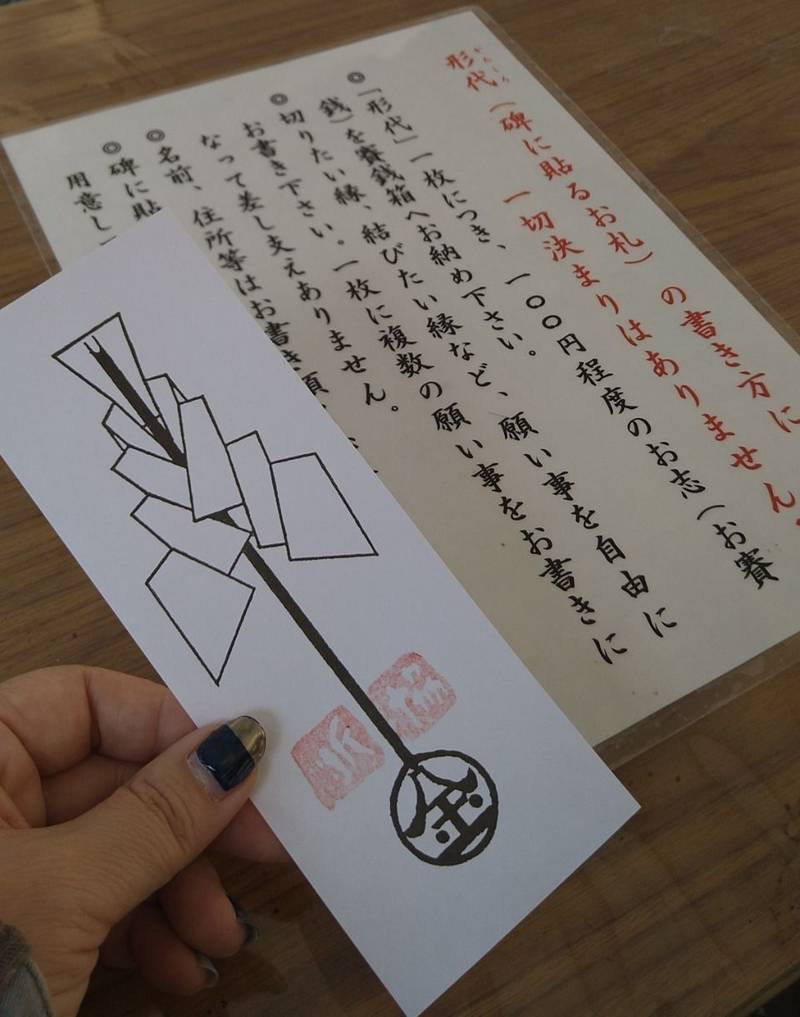 形代（碑に貼るお札）の書き方に
一切決まりはありません。
◎「形代」一枚につき、一〇〇円程度のお志（お賽
銭）を賽銭箱へお納め下さい。
◎切りたい縁、結びたい縁など、願い事を自由に
お書き下さい。一枚に複数の願い事をお書きに
なって差し支えありません。
◎名前、住所等はお書き頂
◎碑に貼
用意し
金